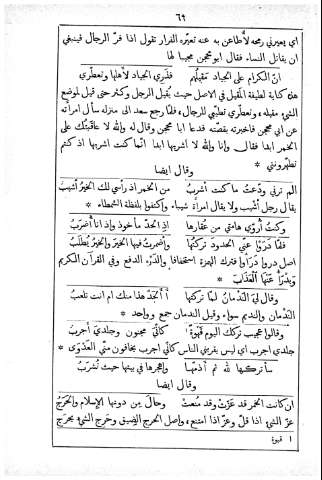 ٦٩
اى يعيرنى رمحه لأطاعن به عنه تعيره الفرار تقول اذا فرّ الرجال فينبغى
ان يقاتل النساء فقال ابو محجن مجيبا لها
انّ الكرام على الجياد مقيلُهم فذرى الجياد لأهلها وتعطّرى
هذه كناية لطيفة المقيل فى الاصل حيث يقيل الرجل وكثر حتى قيل لموضع
الشىء مقيله، وتعطّرى تطيّبى للرجال، فلمّا رجع سعد الى منزله سأل امرأته
عن ابى محجن فاخبرته بقصّته فدعا ابا محجن وقال له والله لا عاقبتك على
الخمر ابدا فقال وانا والله لا اشربها ابدا انّما كنت اشربها اذ كنتم
تطهّروننى *
وقال ايضا
الم ترنى ودّعتُ ما كنت أشربُ من الخمر اذ رأسى لك الخيرُ أشيبُ
يقال رجل أشيب ولا يقال امرأة شيباء واكتفوا بلفظة الشمطاء *
وكنتُ أروّى هامتى من عُقارها اذ الحدّ مأخوذ وإذ انا أضرَبُ
فلمّا دَرَوْا عنّى الحدودَ تركتُها وأضمرتُ فيها الخيرَ والخيرُ يُطلَبُ
اصل دروا درأوا فترك الهمزة استخفافا والدَرْء الدفع وفى القرآن الكريم
وَيَدْرَأُ عَنْهَا ٱلْعَذَابَ *
وقال لىَ النَدْمانُ لمّا تركتُها أألجِدّ هذا منك ام انت تلعبُ
النَدْمان والنديم سواء وقيل الندمان جمع وواحد *
وقالوا عجيب تركك اليوم قهوةً كأنّى مجنون وجلدىَ أجربُ
جلدى اجرب اى ليس يقربنى الناس كأنّى اجرب يخافون منّى العدْوَى *
سأتركها لله ثم أذمّها وأهجرها فى بيتها حيث تُشرَبُ
وقال ايضا
ان كانت الخمر قد عَزّتْ وقد مُنعتْ وحالَ مِن دونها الإسلام والحَرَجُ
عزّ الشىء اذا قلّ وعزّ اذا امتنع، وأصل الحرج الضيق وحَرِجَ الشىء يحرَج